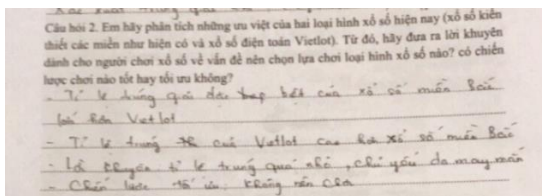 Câu hỏi 2. Em hãy phân tích những ưu việt của hai loại hình xổ số hiện nay (xổ số kiến
thiết các miền như hiện có và xổ số điện toán Vietlot). Từ đó, hãy đưa ra lời khuyên
dành cho người chơi xổ số về vấn đề nên chọn lựa chơi loại hình xổ số nào? có chiến
lược chơi nào tốt hay tối ưu không?
- Tỉ lệ trúng giải đặc biệt của xổ số miền Bắc
hơn Vietlot
- Tỉ lệ trúng của Vietlot cao hơn xổ số miền Bắc
- Lời khuyên tỉ lệ trúng quá nhỏ, chủ yếu do may mắn
- Chiến lược tối ưu: không nên chơi